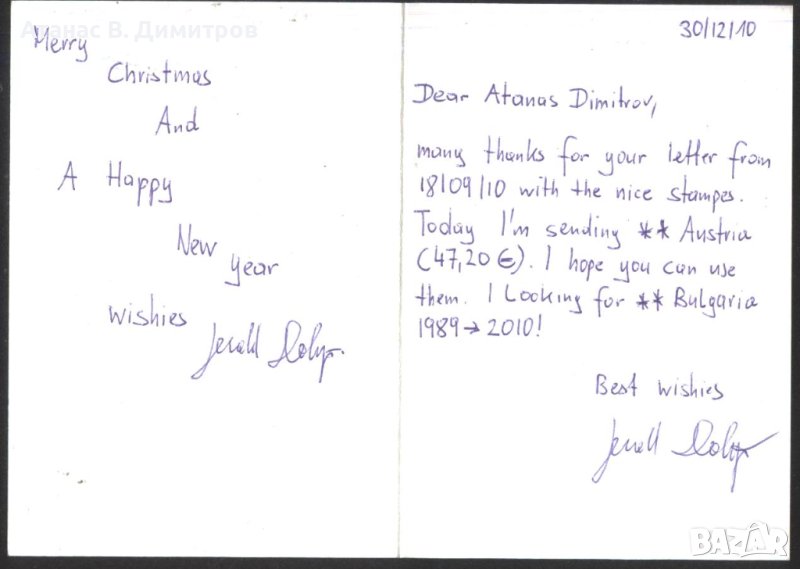 Атанас В. Димитров
Merry
Christmas
And
A Happy
New
year
wishies
30/12/10
Dear Atanas Dimitrov,
many thanks for your letter from
18/09/10 with the nice stampes.
Today I'm sending ** Austria
(47,20 €). I hope you can use
them. I Looking for ** Bulgaria
1989 → 2010!
Best wishies
BAZAR